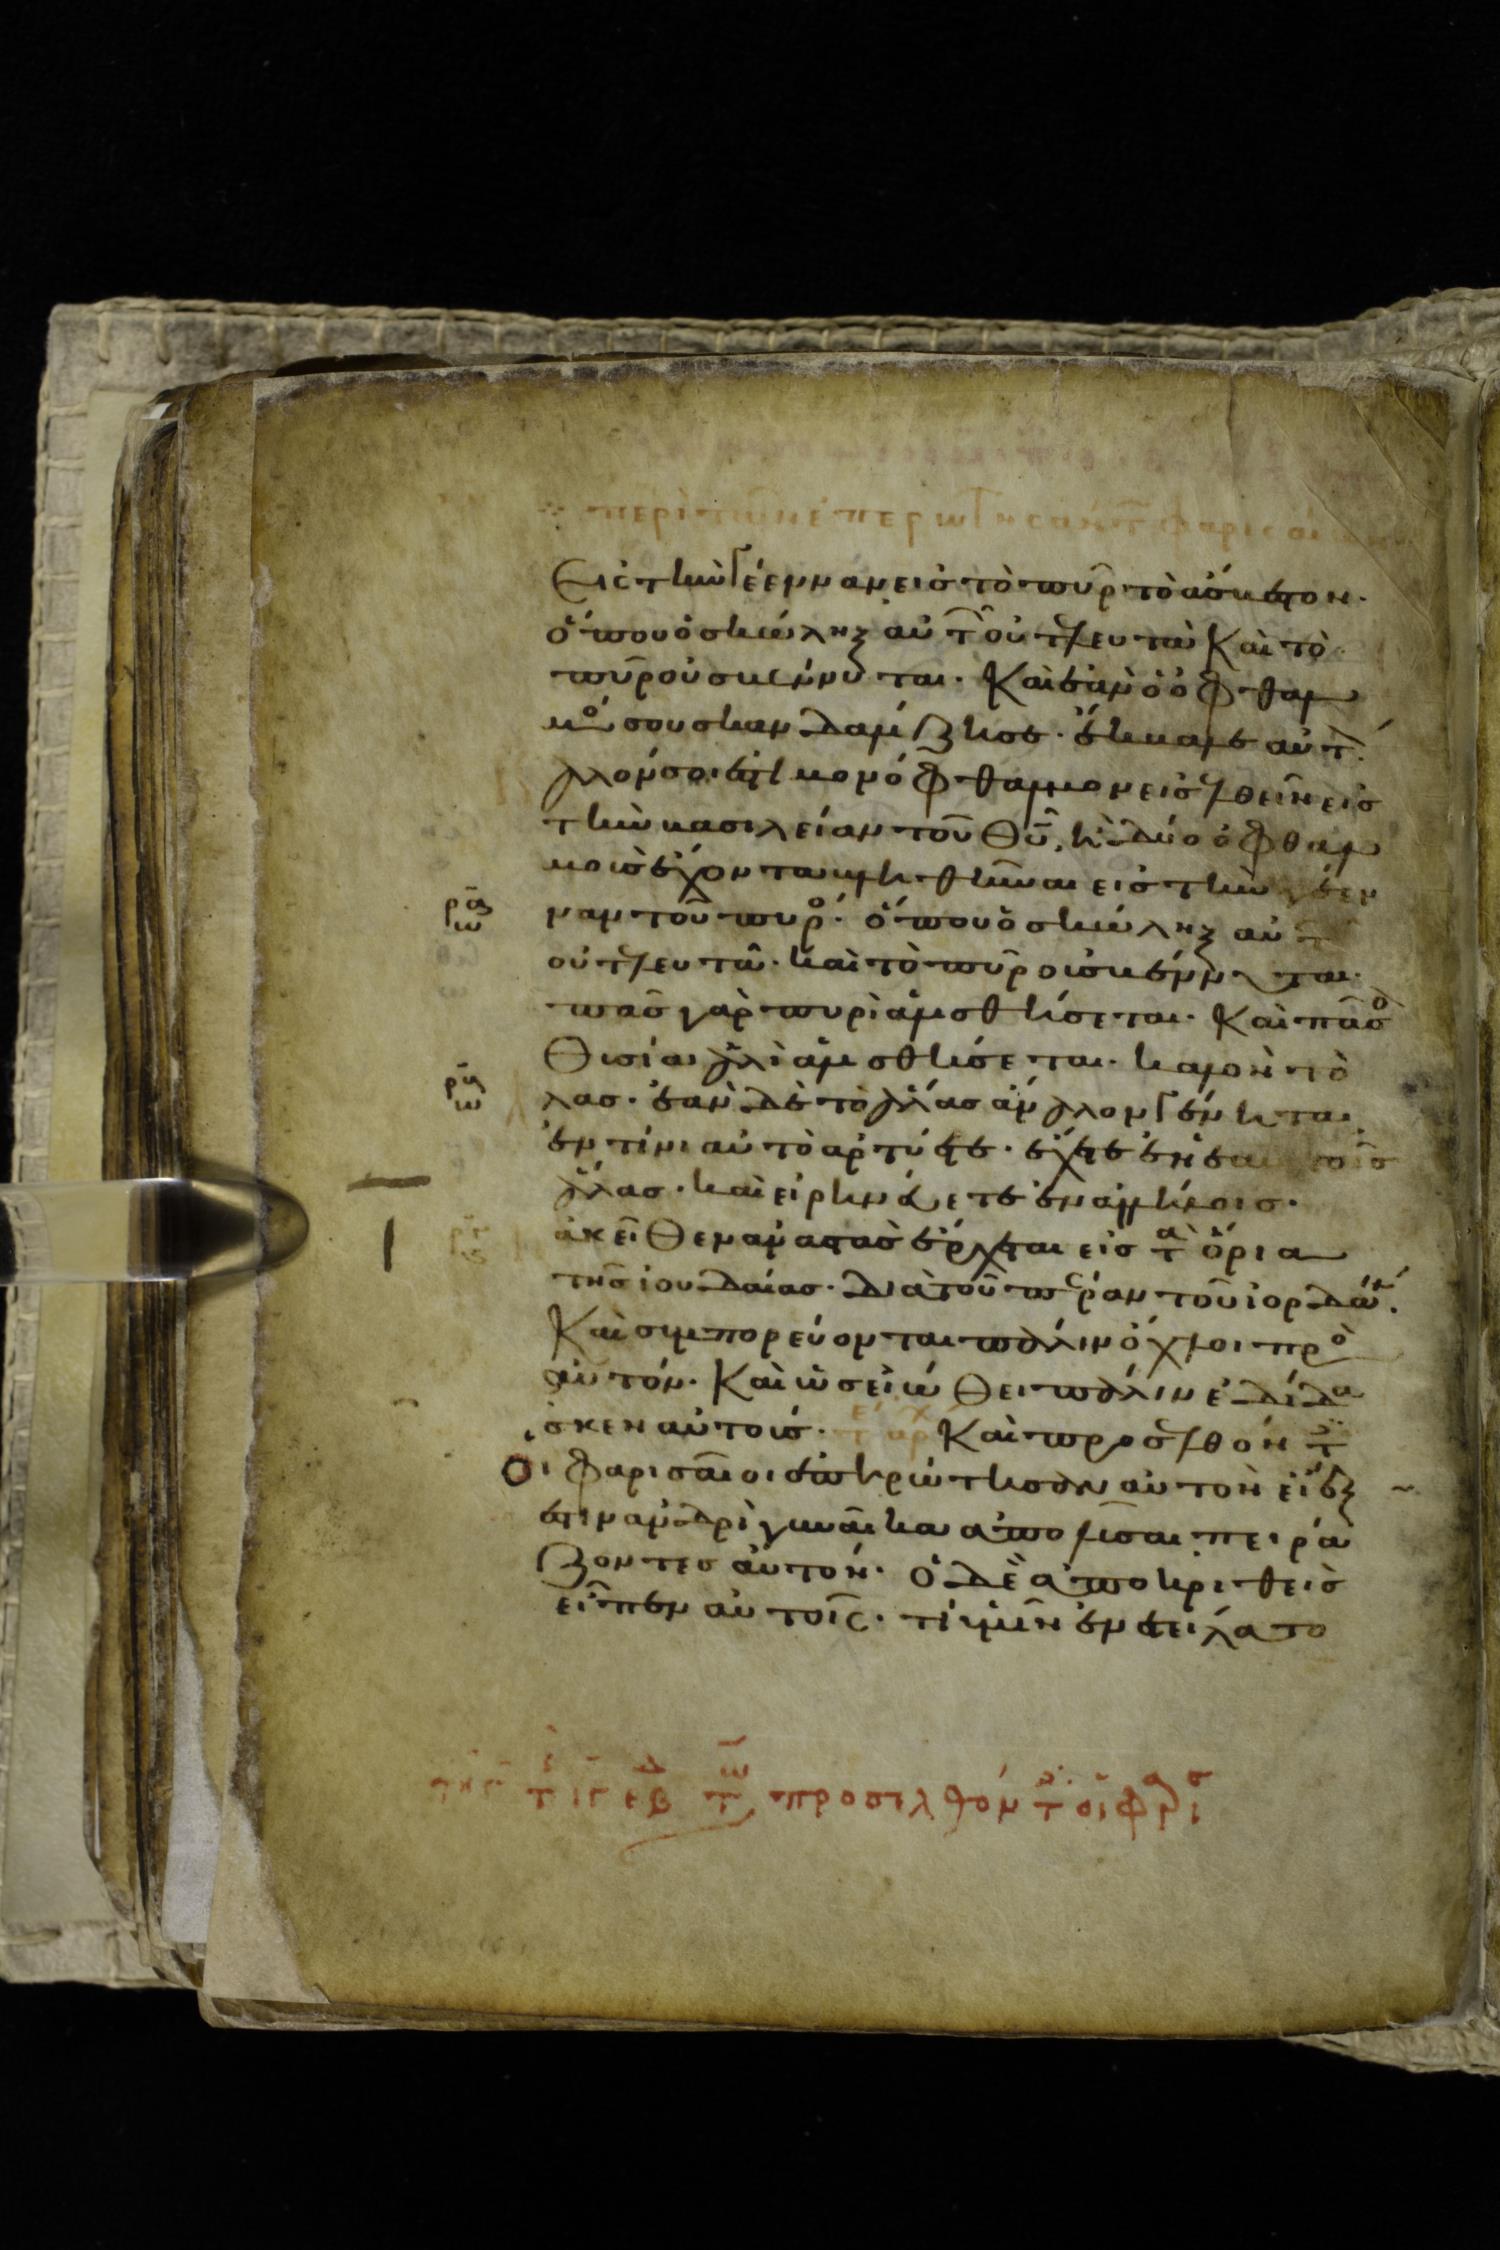 περι των επερωτησαντ φαρισαι
Εἰς τὴν γέενναν εἰς τὸ πῦρ τὸ ἄσβεστον·
ὅπου ὁ σκώληξ αὐτῶν οὐ τελευτᾶ Καὶ τὸ
πῦρ οὐ σβέννυται. Καὶ ἐὰν ὁ ὀφθαλ
μό σου σκανδαλίζει σε· ἔκβαλε αὐτ
λόν σοι ἐστὶ μονόφθαλμον εἰσελθεῖν εἰς
τὴν βασιλείαν τοῦ Θῦ, ἢ δύο ὀφθαλ
μοὺς ἔχοντα βληθῆναι εἰς τὴν γέεν
ναν τοῦ πυρό· ὅπου ὁ σκώληξ αὐτ
οὐ τελευτᾶ· καὶ τὸ πῦρ οὐ σβέννυται·
πᾶς γὰρ πυρὶ ἁλισθήσεται· Καὶ πᾶσ
Θυσία ἁλὶ ἁλισθήσεται· καλὸν τὸ
λας· ἐὰν δὲ τὸ ἅλας ἄναλον γένηται
ἐν τίνι αὐτὸ ἀρτύσετε· ἔχετε ἐν ἑαυτοῖς
ἅλας· καὶ εἰρηνεύετε ἐν ἀλλήλοις·
ἀκεῖΘεν ἀναστὰς ἔρχεται εἰς τὰ ὅρια
τῆς ἰουδαίας· διὰ τοῦ πέραν τοῦ ἰορδάν.
Καὶ συμπορεύονται πάλιν ὄχλοι πρὸ
αὐτόν· Καὶ ὡς εἰώΘει πάλιν ἐδίδα
σκεν αὐτούς· Καὶ προσελθόντ
Οι φαρισαῖοι ἐπηρώτησαν αὐτὸν εἰ ἔξ
εστιν ἀνδρὶ γυναῖκα ἀπολῦσαι πειρά
ζοντες αὐτόν· ὁ δὲ ἀποκριθεὶς
εἶπεν αὐτοῖς· τί ὑμῖν ἐνετείλατο
προσελθόντ οἱ φρισ